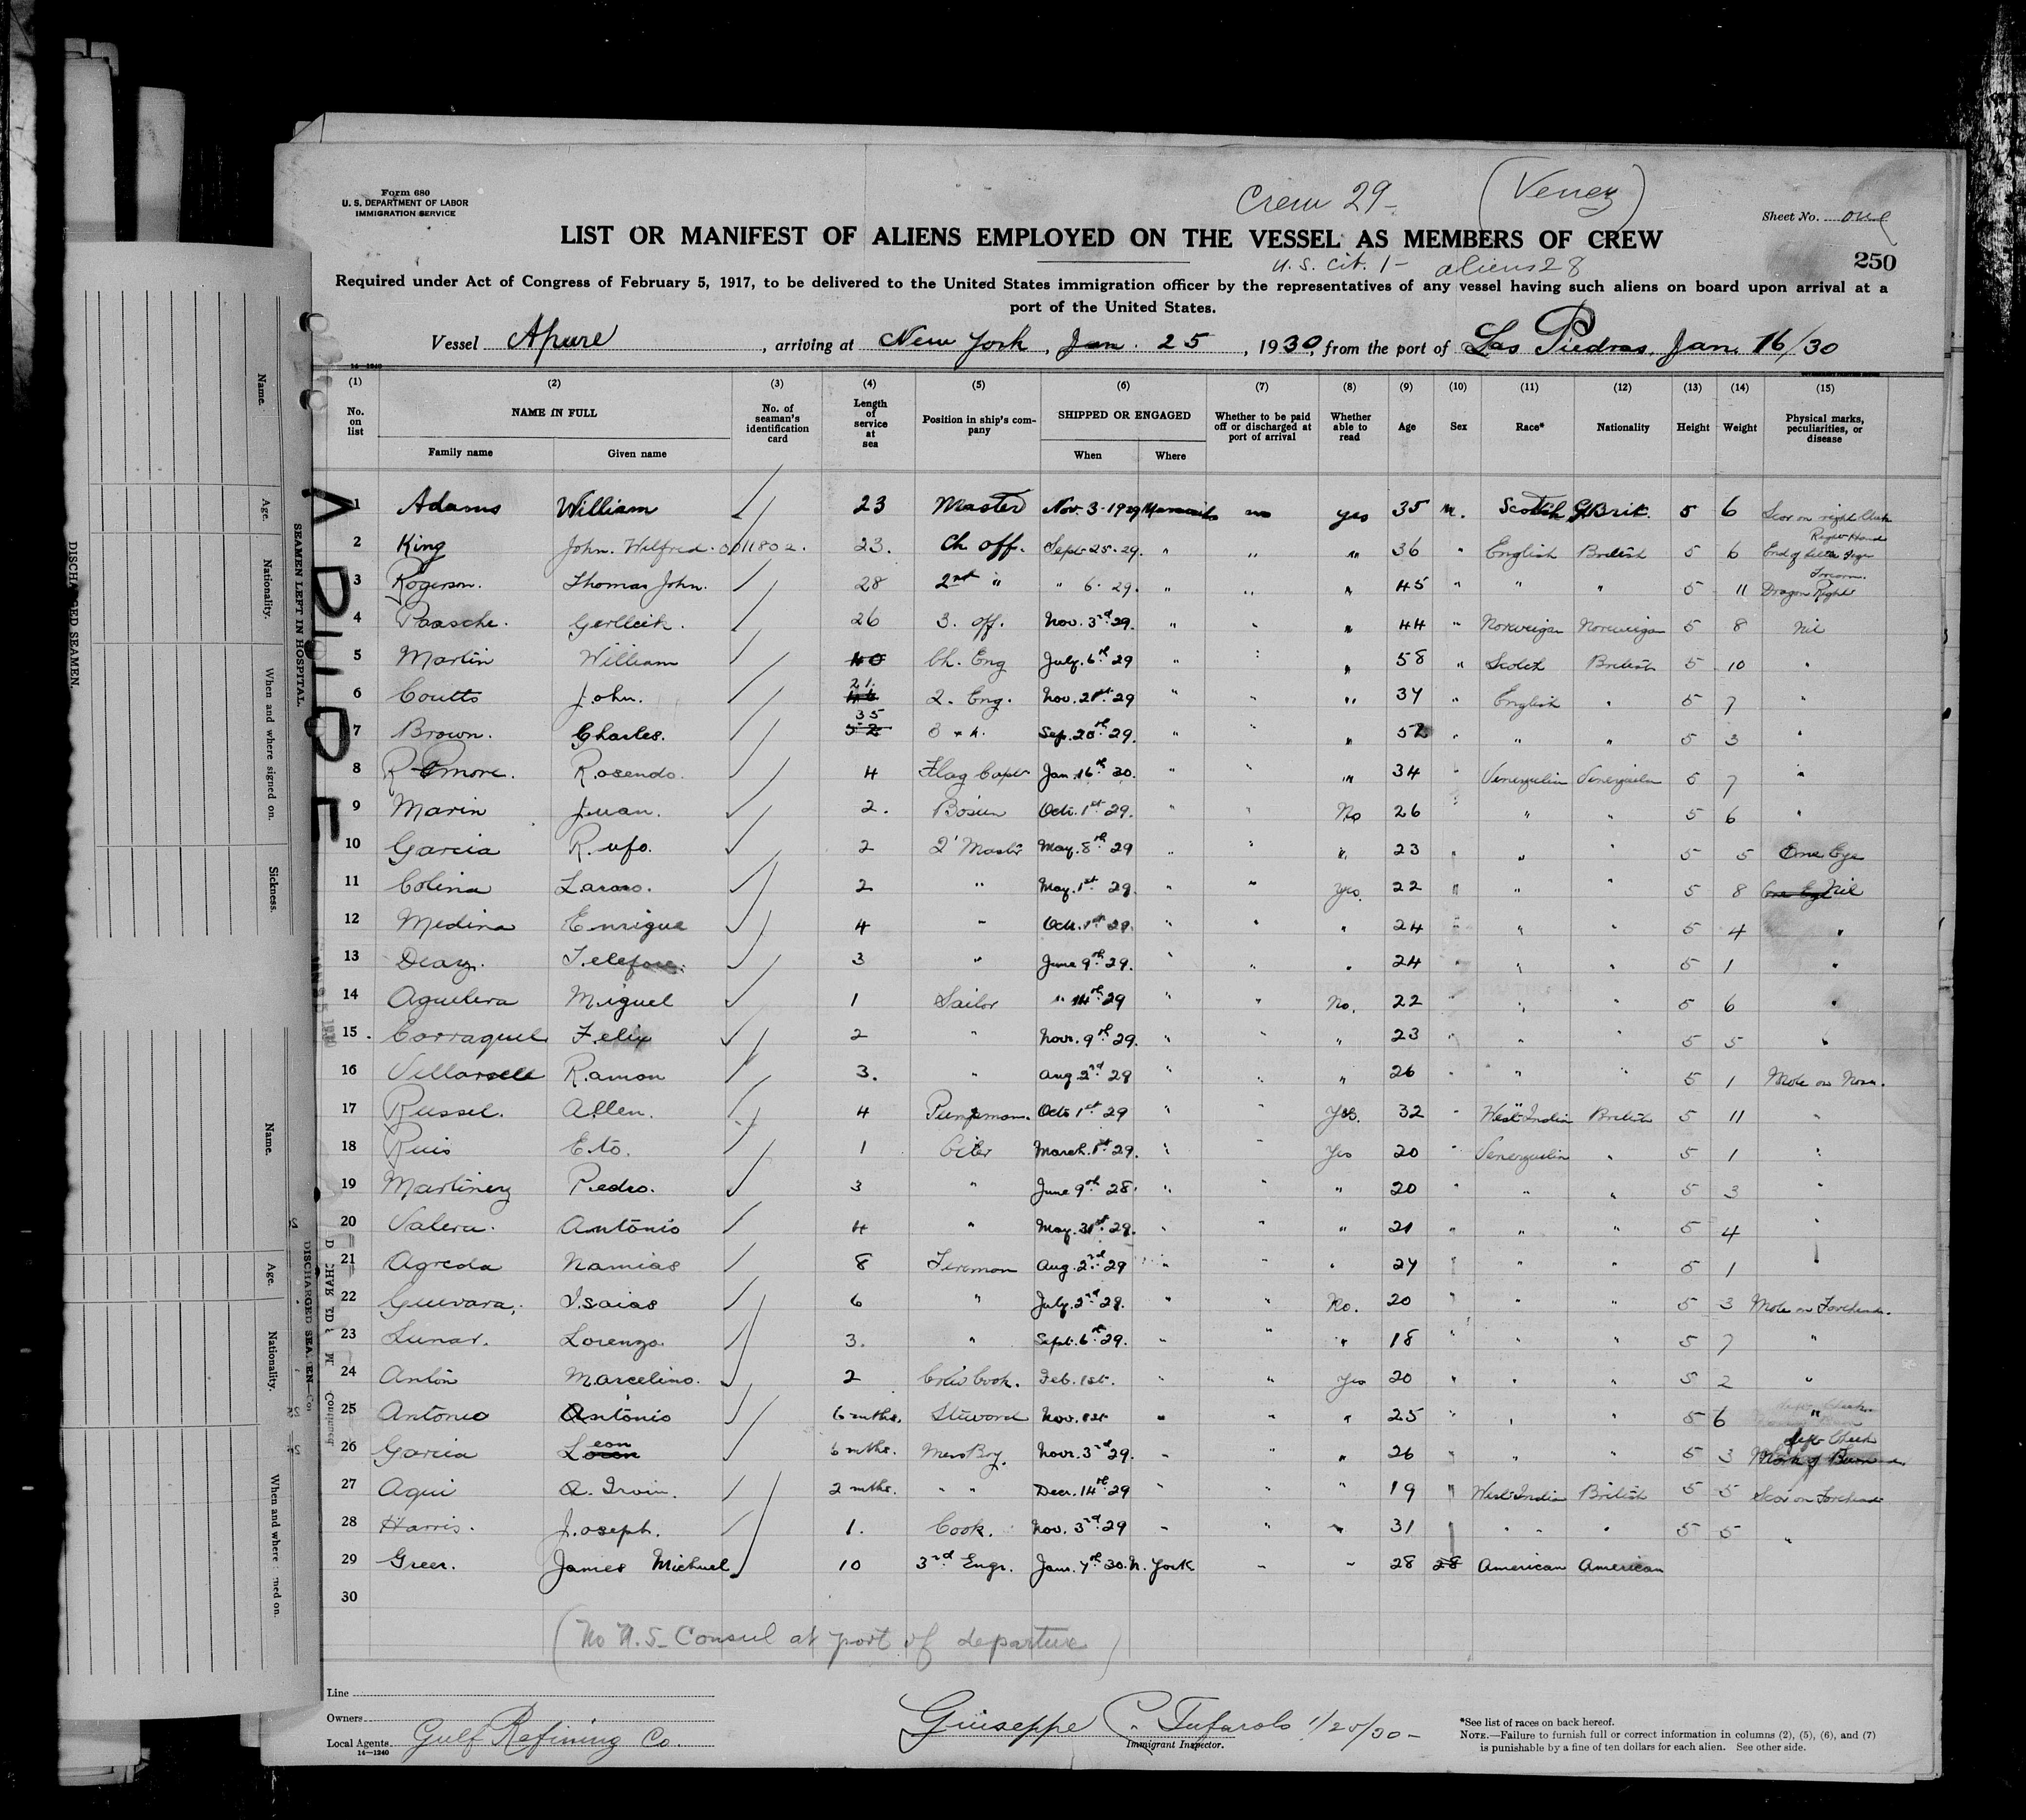 Form 680
U. S. DEPARTMENT OF LABOR
IMMIGRATION SERVICE
Crew 29-
(Venez)
Sheet No. one
LIST OR MANIFEST OF ALIENS EMPLOYED ON THE VESSEL AS MEMBERS OF CREW
U.S. Cit. 1 - aliens 28
250
Required under Act of Congress of February 5, 1917, to be delivered to the United States immigration officer by the representatives of any vessel having such aliens on board upon arrival at a
port of the United States.
Vessel Apure, arriving at New York, Jan. 25, 1930, from the port of Las Piedras, Jan. 16/30
14-1240
(1) (2) (3) (4) (5) (6) (7) (8) (9) (10) (11) (12) (13) (14) (15)
No. on list NAME IN FULL Family name Given name No. of seaman's identification card Length of service at sea Position in ship's company SHIPPED OR ENGAGED When Where Whether to be paid off or discharged at port of arrival Whether able to read Age Sex Race* Nationality Height Weight Physical marks, peculiarities, or disease
1 Adams William 23 Master Nov. 3-1929 no yes 35 m. Scottish G Brit. 5 6 Scar on right
2 King John. Wilfred. 0011802. 23. Ch off. Sept. 25. 29. " " " 36 " English British 5 6 Right Hand End of
3 Rogerson. Thomas John. 28 2nd " " 6. 29. " " " 45 " " " 5 11 Dragon Right
4 Paasche. 26 3. off. Nov. 3rd 29. " " " 44 " Norweigan Norweigan 5 8 Nil
5 Martin William 40 Ch. Eng July. 6th 29 " " " 58 " Scotch British 5 10 "
6 Coutts John. 21. 2. Eng. Nov. 21st 29 " " " 37 " English " 5 7 "
7 Brown. Charles. 35 52 3 " ". Sep. 20th 29. " " " 52 " " " 5 3 "
8 Rosendo. 4 Flag Capt Jan. 16th 30. " " " 34 " Venezuelin Venezuelin 5 7 "
9 Marin Juan. 2. Bosun Oct. 1st 29. " " No 26 " " " 5 6 "
10 Garcia Rufo. 2 2' Master May. 8th 29 " " " 23 " " " 5 5 One Eye
11 Colina 2 " May. 1st 29. " " Yes. 22 " " " 5 8 One Eye Nil
12 Medina Enrique 4 " Oct. 1st 29. " " " 24 " " " 5 4 "
13 Diaz. 3 " June 9th 29. " " " 24 " " " 5 1 "
14 Aguilera Miguel 1 Sailor " 14th 29 " " No. 22 " " " 5 6 "
15 Felix 2 " Nov. 9th 29. " " " 23 " " " 5 5 "
16 Ramon 3. " Aug. 2nd 29 " " " 26 " " " 5 1 Mole on Nose.
17 Russel. Allen. 4 Pumpman. Oct 1st 29 " " Yes. 32 " West Indian British 5 11 "
18 Ruis Eto. 1 Oiler March. 1st 29. " " Yes 20 " Venezuelin " 5 1 "
19 Martinez Pedro. 3 " June 9th 28. " " " 20 " " " 5 3 "
20 Valera. Antonio 4 " May. 31st 29. " " " 21 " " " 5 4 "
21 Agreda Namias 8 Fireman Aug. 2nd 29 " " " 27 " " " 5 1 "
22 Guevara, Isaias 6 " July. 2nd 29. " " No. 20 " " " 5 3 Mole on Forehead.
23 Lunar. Lorenzo 3. " Sept. 6th 29. " " " 18 " " " 5 7 "
24 Anton Marcelino. 2 Crew Cook. Feb. 1st. " " Yes 20 " " " 5 2 "
25 Antonio Antonio 6 mths. Steward Nov. 1st " " " 25 " " " 5 6 "
26 Garcia Leon 6 mths. Mess Boy. Nov. 3rd 29. " " " 26 " " " 5 3 Left Cheek Mark of Burn
27 Aqui A. Irvin. 2 mths. " " Decr. 14th 29 " " " 19 " West Indian British 5 5 Scar on Forehead
28 Harris. Joseph. 1. Cook. Nov. 3rd 29 " " " 31 " " " " 5 5 "
29 Greer. James Michael 10 3rd Engr. Jan. 7th 30. N. York " " 28 28 American American
30
(No U.S. Consul at port of departure)
Line
Owners
Local Agents Gulf Refining Co.
14-1240
Giuseppe C. Tufarolo 1/25/30 -
Immigrant Inspector.
*See list of races on back hereof.
NOTE.—Failure to furnish full or correct information in columns (2), (5), (6), and (7)
is punishable by a fine of ten dollars for each alien. See other side.
APURE
SEAMEN LEFT IN HOSPITAL.
DISCHARGED SEAMEN.
Name.
Age.
Nationality.
When and where signed on.
Sickness.
Name.
Age.
Nationality.